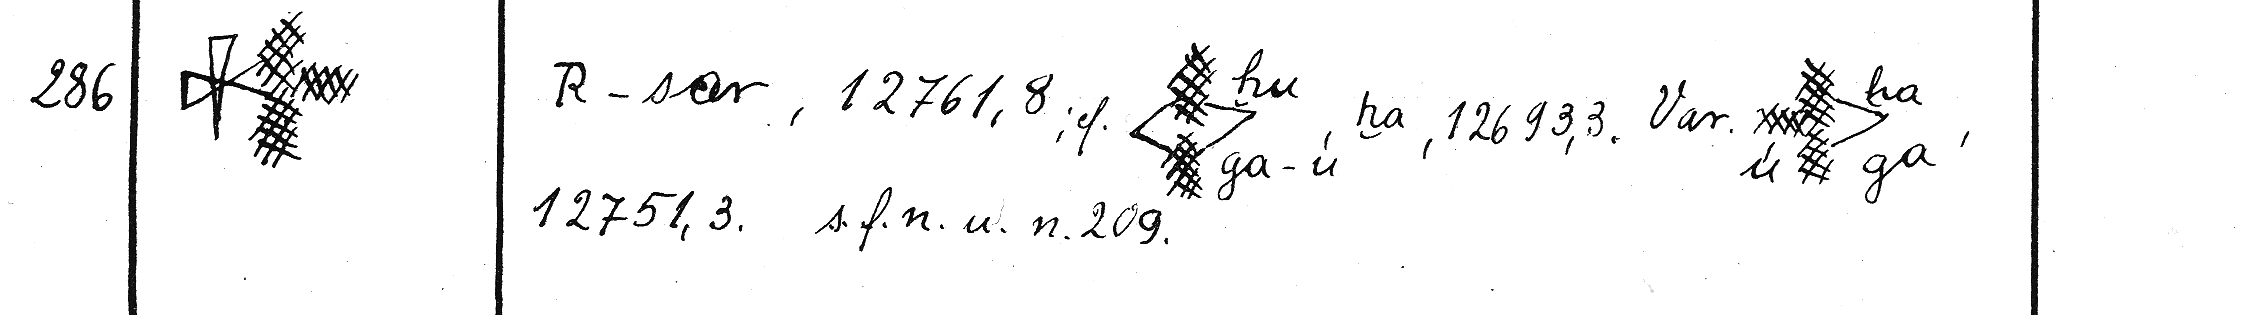 286 R-sar, 12761,8; cf. ḫu ga-ú, ḫa, 12693,3. Var. ú ḫa ga,
12751,3. s. f. n. u. n. 209.